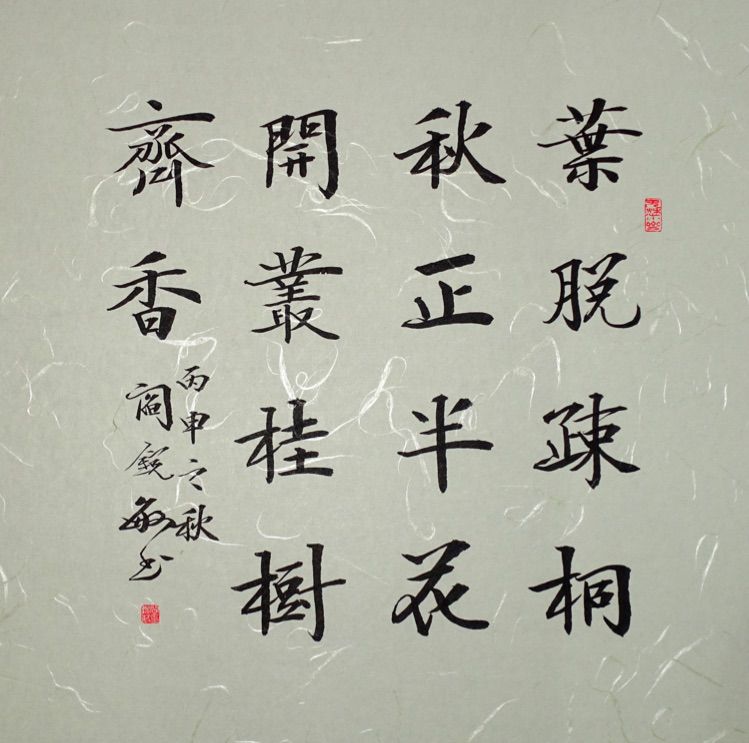 葉脱疎桐
秋正半花
開叢桂樹
齊香
丙申之秋
閻銳敏书